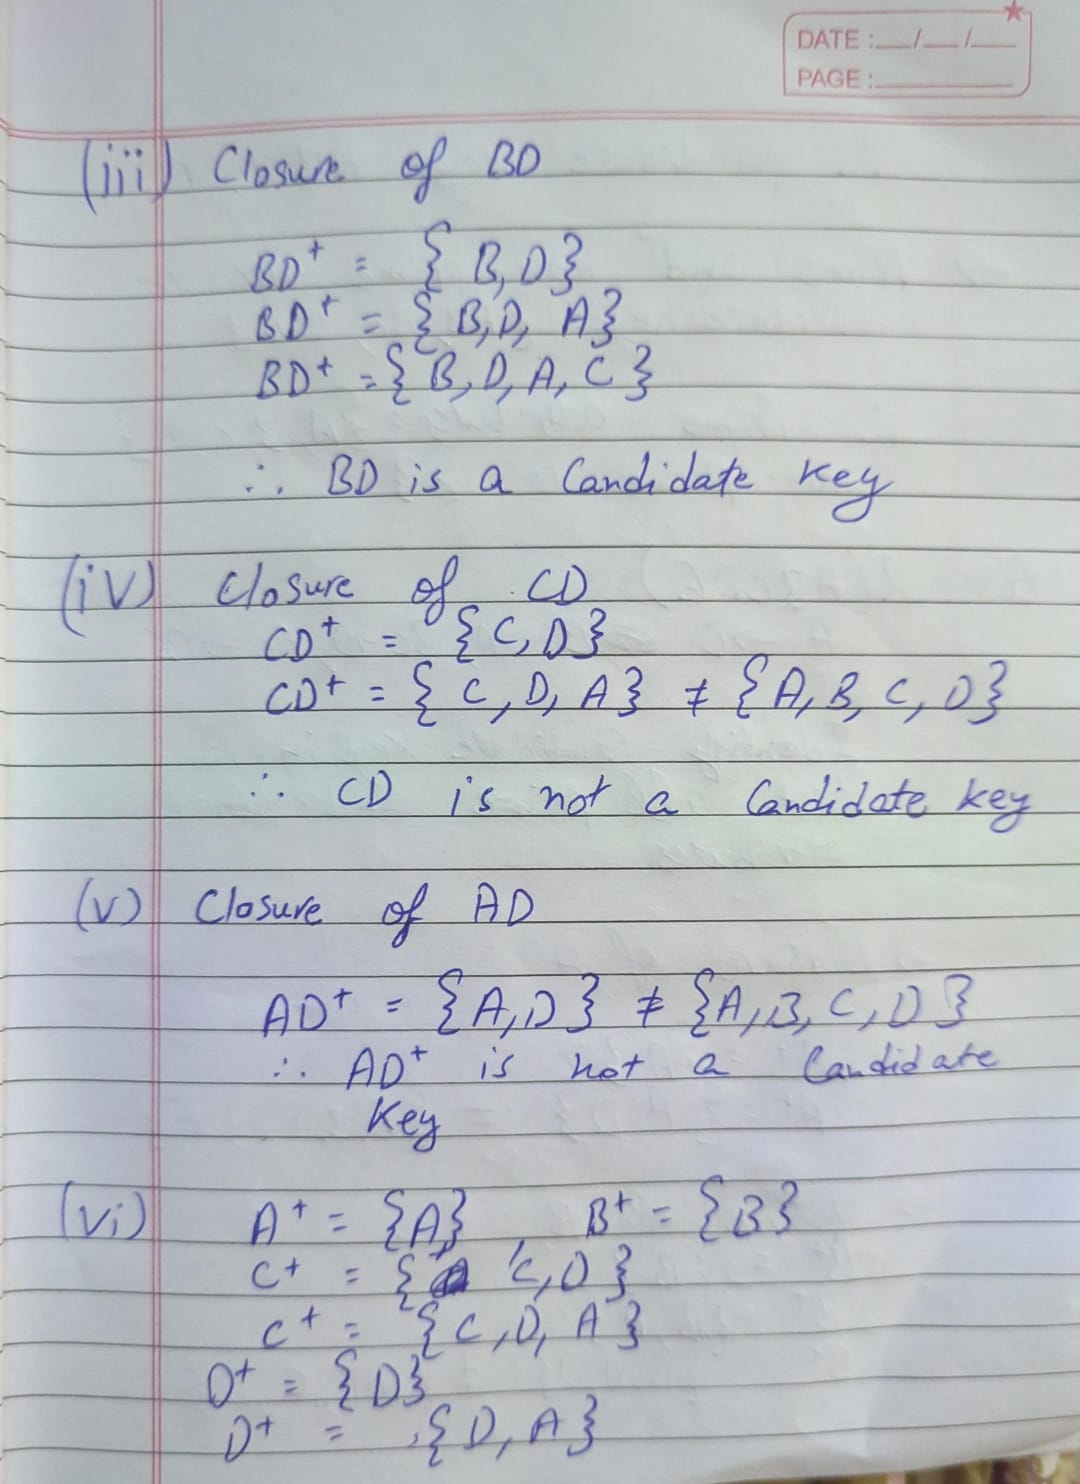 DATE : / /
PAGE :
(iii) Closure of BD
BD⁺ = {B, D}
BD⁺ = {B, D, A}
BD⁺ = {B, D, A, C}
∴ BD is a Candidate Key
(iv) Closure of CD
CD⁺ = {C, D}
CD⁺ = {C, D, A} ≠ {A, B, C, D}
∴ CD is not a Candidate Key
(v) Closure of AD
AD⁺ = {A, D} ≠ {A, B, C, D}
∴ AD⁺ is not a Candidate
Key
(vi) A⁺ = {A}, B⁺ = {B}
C⁺ = { C, D}
C⁺ = {C, D, A}
D⁺ = {D}
D⁺ = {D, A}